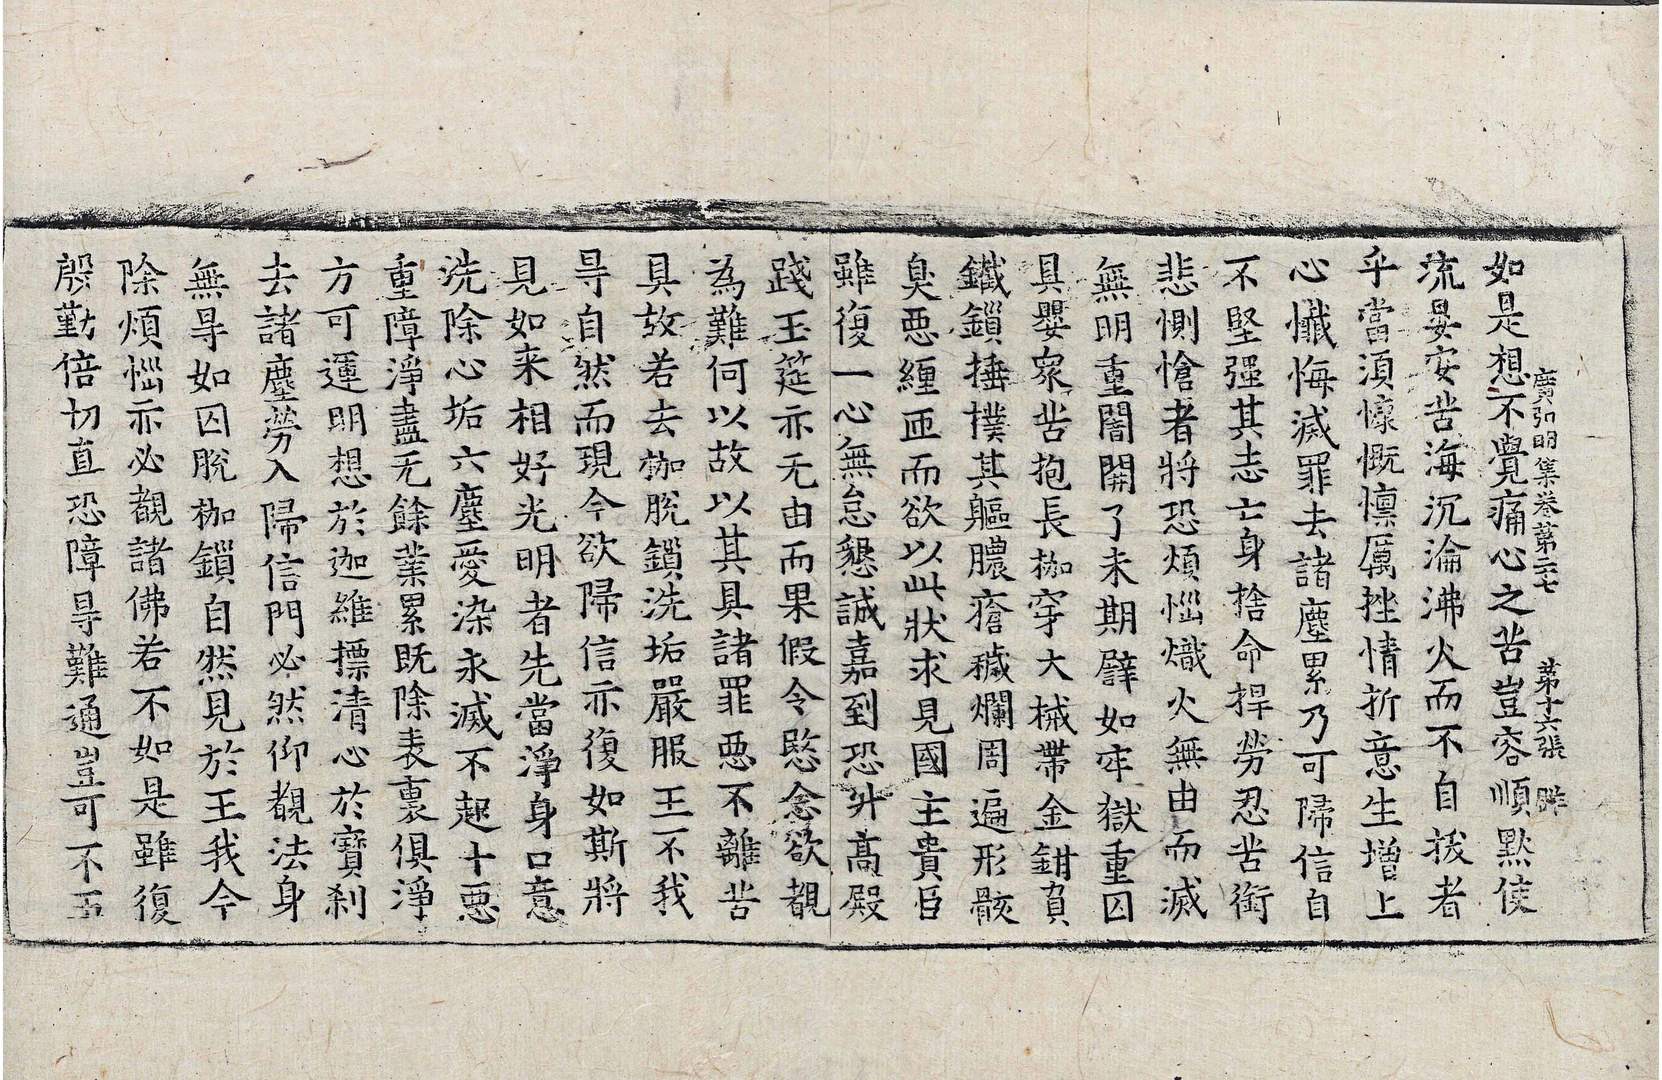 如是想不覺痛心之苦豈容順默使
廣弘明集卷第二七　第十六張　群
流晏安苦海沉淪沸火而不自拔者
乎當湏慷慨懍厲挫情折意生增上
心懺悔滅罪去諸塵累乃可歸信自
不堅强其志亡身捨命捍勞忍苦銜
悲惻愴者將恐煩惱熾火無由而滅
無明重闇開了未期譬如牢獄重囚
具嬰衆苦抱長枷穿大械帶金鉗負
鐵鎖捶撲其軀膿瘡穢爛周遍形骸
臭惡纏匝而欲以此狀求見國主貴臣
雖復一心無怠懇誠嘉到恐升高殿
踐玉筵亦无由而果假令愍念欲覩
為難何以故以其具諸罪惡不離苦
具故若去枷脫鎖洗垢嚴服王不我
㝵自然而現今欲歸信亦復如斯將
見如来相好光明者先當淨身口意
洗除心垢六塵愛染永滅不起十惡
重障淨盡无餘業累既除表裏俱淨
方可運明想於迦維摽清心於寶刹
去諸塵勞入歸信門必然仰覩法身
無㝵如囚脫枷鎖自然見於王我今
除煩惱亦必覩諸佛若不如是雖復
殷勤倍切直恐障㝵難通豈可不五